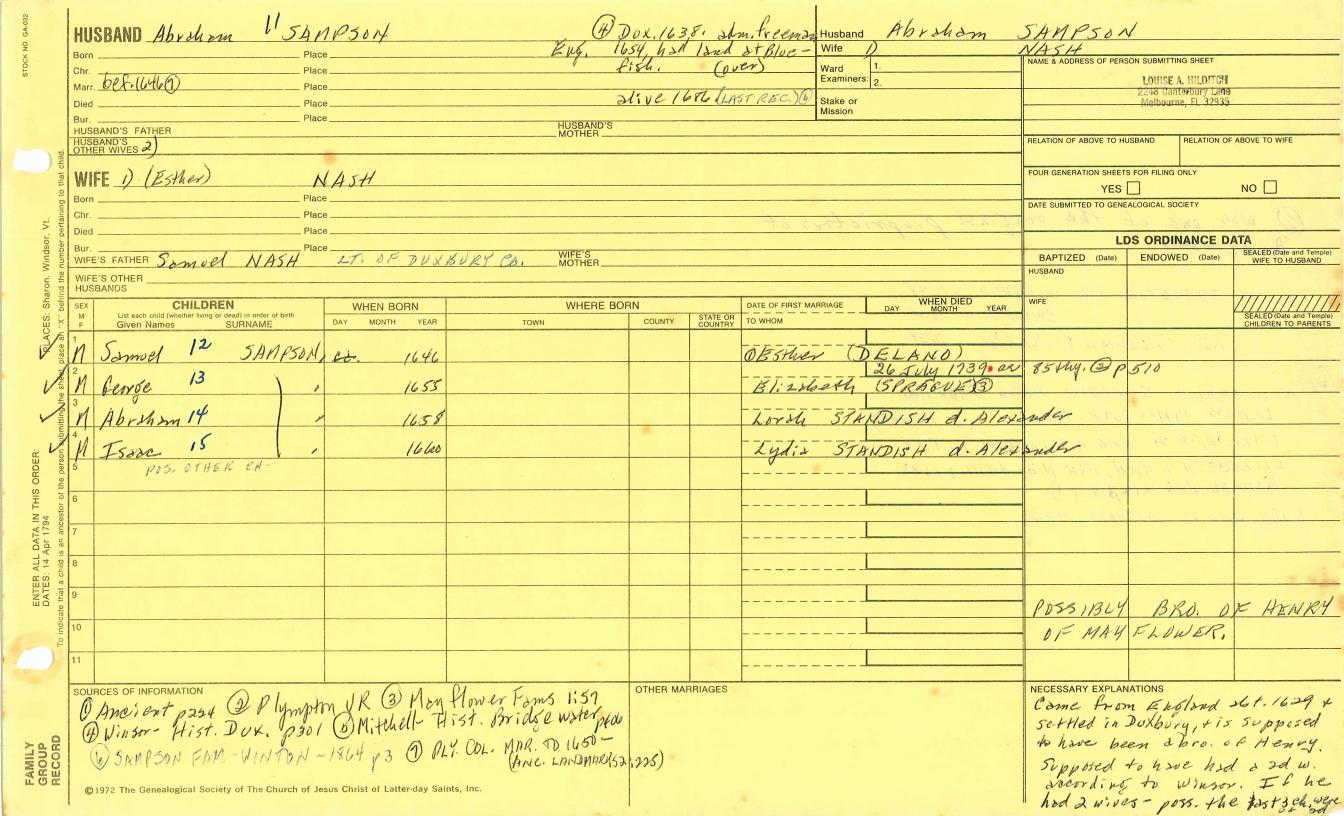 STOCK NO. GA-032
HUSBAND Abraham 11 SAMPSON
④ Dux. 1638. adm. freeman
Born Place Eng. 1654, had land at Blue-
Chr. Place fish. (over)
Marr. bef. 1646⑦ Place
Died Place alive 1686 (LAST REC.) ⑥
Bur. Place
HUSBAND'S FATHER
HUSBAND'S MOTHER
HUSBAND'S OTHER WIVES 2)
Husband Abraham SAMPSON
Wife 1) NASH
Ward 1.
Examiners: 2.
Stake or
Mission
NAME & ADDRESS OF PERSON SUBMITTING SHEET
LOUISE A. HILDITCH
2248 Canterbury Lane
Melbourne, FL 32935
RELATION OF ABOVE TO HUSBAND RELATION OF ABOVE TO WIFE
FOUR GENERATION SHEETS FOR FILING ONLY
YES NO
DATE SUBMITTED TO GENEALOGICAL SOCIETY
WIFE 1) (Esther) NASH
Born Place
Chr. Place
Died Place
Bur. Place
WIFE'S FATHER Samuel NASH LT. OF DUXBURY CO. WIFE'S MOTHER
WIFE'S OTHER
HUSBANDS
LDS ORDINANCE DATA
BAPTIZED (Date) ENDOWED (Date) SEALED (Date and Temple) WIFE TO HUSBAND
HUSBAND
WIFE
SEALED (Date and Temple) CHILDREN TO PARENTS
SEX M F
CHILDREN
List each child (whether living or dead) in order of birth
Given Names SURNAME
WHEN BORN
DAY MONTH YEAR
WHERE BORN
TOWN COUNTY STATE OR COUNTRY
DATE OF FIRST MARRIAGE
TO WHOM
WHEN DIED
DAY MONTH YEAR
1 M Samuel 12 SAMPSON, ca. 1646 ①Esther (DELANO)
2 M George 13 " 1655 26 July 1739 ae 85thy. ② p510
Elizabeth (SPRAGUE③)
3 M Abraham 14 " 1658 Lorah STANDISH d. Alexander
4 M Isaac 15 " 1660 Lydia STANDISH d. Alexander
5 POS. OTHER CH-
6
7
8
9
10
11
POSSIBLY BRO. OF HENRY
OF MAYFLOWER.
SOURCES OF INFORMATION
① Ancient p224 ② Plympton VR ③ Mayflower Fams 1:57
④ Winsor- Hist. Dux. p301 ⑤ Mitchell- Hist. Bridgewater
⑥ SAMPSON FAM-WINTON-1864 p3 ⑦ PLY. COL. MAR. TO 1650-
OTHER MARRIAGES
NECESSARY EXPLANATIONS
Came from England abt. 1629 &
settled in Duxbury, & is supposed
to have been a bro. of Henry.
Supposed to have had a 2d w.
according to Winsor. If he
had 2 wives- poss. the last 3 ch. were
©1972 The Genealogical Society of The Church of Jesus Christ of Latter-day Saints, Inc.
FAMILY
GROUP
RECORD
ENTER ALL DATA IN THIS ORDER:
DATES: 14 Apr 1794
PLACES: Sharon, Windsor, Vt.
To indicate that a child is an ancestor of the person submitting the sheet, place an "X" behind the number pertaining to that child.